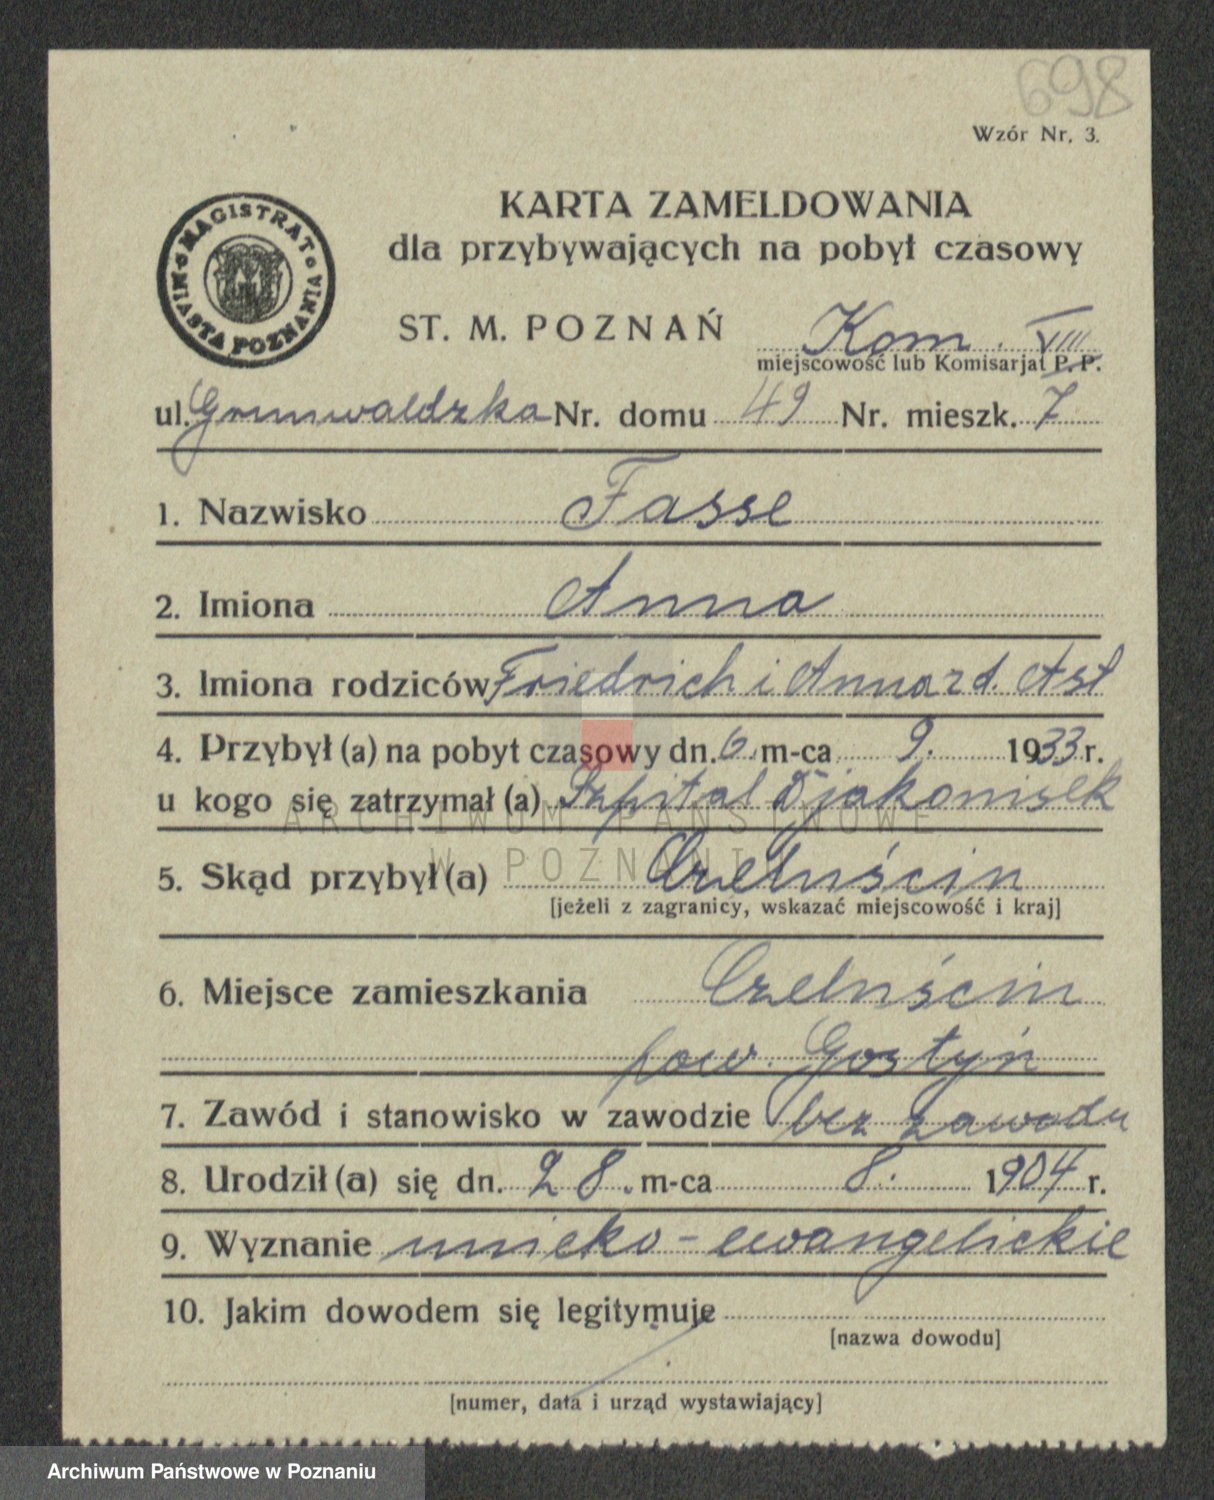 698
Wzór Nr. 3.
MAGISTRAT MIASTA POZNANIA
KARTA ZAMELDOWANIA
dla przybywających na pobyt czasowy
ST. M. POZNAŃ Kom. VIII
miejscowość lub Komisarjat P. P.
ul. Grunwaldzka Nr. domu 49 Nr. mieszk. 7
1. Nazwisko Fasse
2. Imiona Anna
3. Imiona rodziców Friedrich i Anna zd. Ast
4. Przybył (a) na pobyt czasowy dn. 6. m-ca 9. 1933 r.
u kogo się zatrzymał (a) Szpital Djakonisek
ARCHIWUM PAŃSTWOWE
W POZNANIU
5. Skąd przybył (a) Czeluścin
[jeżeli z zagranicy, wskazać miejscowość i kraj]
6. Miejsce zamieszkania Czeluścin
pow. Gostyń
7. Zawód i stanowisko w zawodzie bez zawodu
8. Urodził (a) się dn. 28. m-ca 8. 1904 r.
9. Wyznanie unicko-ewangelickie
10. Jakim dowodem się legitymuje
[nazwa dowodu]
[numer, data i urząd wystawiający]
Archiwum Państwowe w Poznaniu